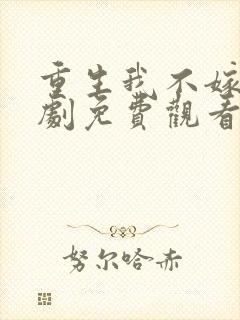 重生我不嫁
劇免費觀看
努尔哈赤